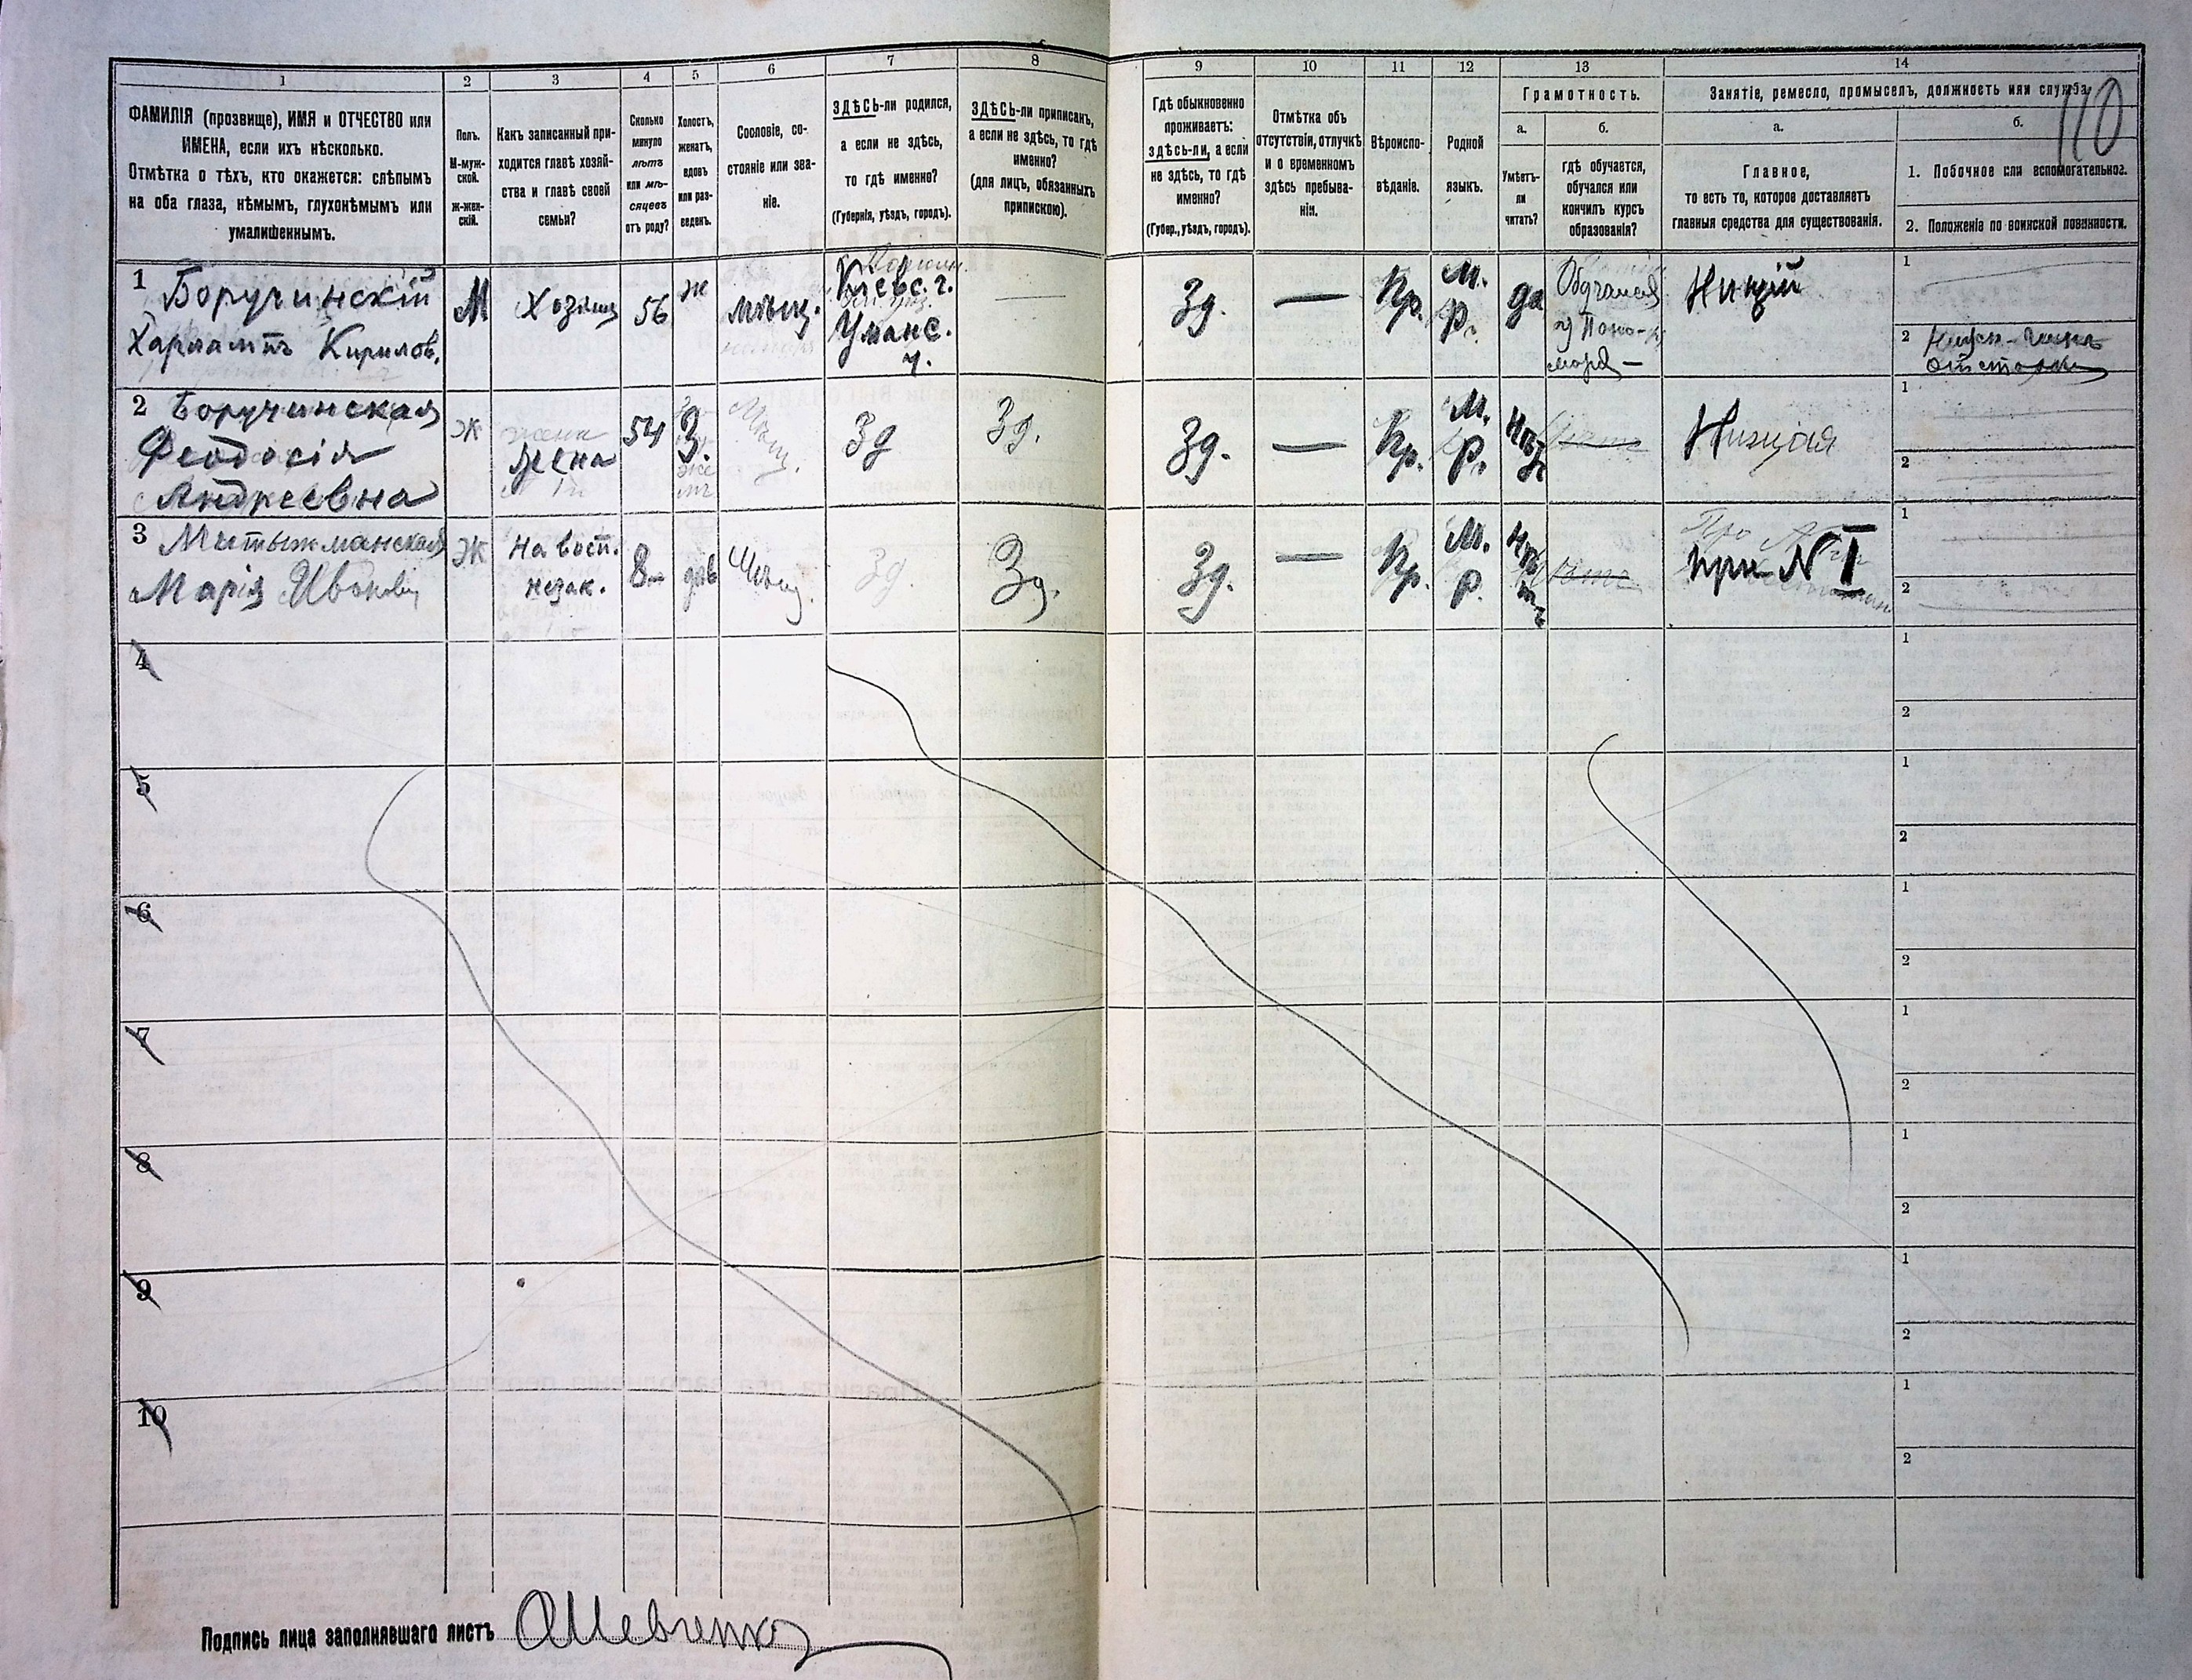 110
1
2
3
4
5
6
7
8
9
10
11
12
13
14
ФАМИЛІЯ (прозвище), ИМЯ и ОТЧЕСТВО или
ИМЕНА, если ихъ нѣсколько.
Отмѣтка о тѣхъ, кто окажется: слѣпымъ
на оба глаза, нѣмымъ, глухонѣмымъ или
умалишеннымъ.
Полъ.
М-муж-
ской.
Ж-жен-
скій.
Какъ записанный при-
ходится главѣ хозяй-
ства и главѣ своей
семьи?
Сколько
минуло
лѣтъ
или мѣ-
сяцевъ
отъ роду?
Холостъ,
женатъ,
вдовъ
или раз-
веденъ.
Сословіе, со-
стояніе или зва-
ніе.
ЗДѢСЬ-ли родился,
а если не здѣсь,
то гдѣ именно?
(Губернія, уѣздъ, городъ).
ЗДѢСЬ-ли приписанъ,
а если не здѣсь, то гдѣ
именно?
(для лицъ, обязанныхъ
припискою).
Гдѣ обыкновенно
проживаетъ:
здѣсь-ли, а если
не здѣсь, то гдѣ
именно?
(Губер., уѣздъ, городъ).
Отмѣтка объ
отсутствіи, отлучкѣ
и о временномъ
здѣсь пребыва-
ніи.
Вѣроиспо-
вѣданіе.
Родной
языкъ.
Грамотность.
а.
б.
Умѣетъ-
ли
читать?
гдѣ обучается,
обучался или
кончилъ курсъ
образованія?
Занятіе, ремесло, промыселъ, должность или служба.
а.
б.
Главное,
то есть то, которое доставляетъ
главныя средства для существованія.
1. Побочное или вспомогательное.
2. Положеніе по воинской повинности.
1 Боручинскій
Харлампъ Кирилов.
М
Хозяинъ
56
ж
мѣщ.
Кіевс. г.
Уманс.
у.
Зд.
—
Пр.
М.
Р.
да
Обучался
у Поно-
маря —
Нищій
1
2 Нижн-чинъ
отставки
2 Боручинская
Феодосія
Андреевна
Ж
жена
54
З.
Мѣщ.
Зд
Зд.
Зд.
—
Пр.
М.
Р.
Нѣтъ
Нищая
1
2
3
Марія Иванов
Ж
На восп.
незак.
8
дѣв
Мѣщ.
Зд.
Зд.
Зд.
—
Пр.
М.
Р.
Нѣтъ
при N I
1
2
4
1
2
5
1
2
6
1
2
7
1
2
8
1
2
9
1
2
10
1
2
Подпись лица заполнявшаго листъ ОШевченко